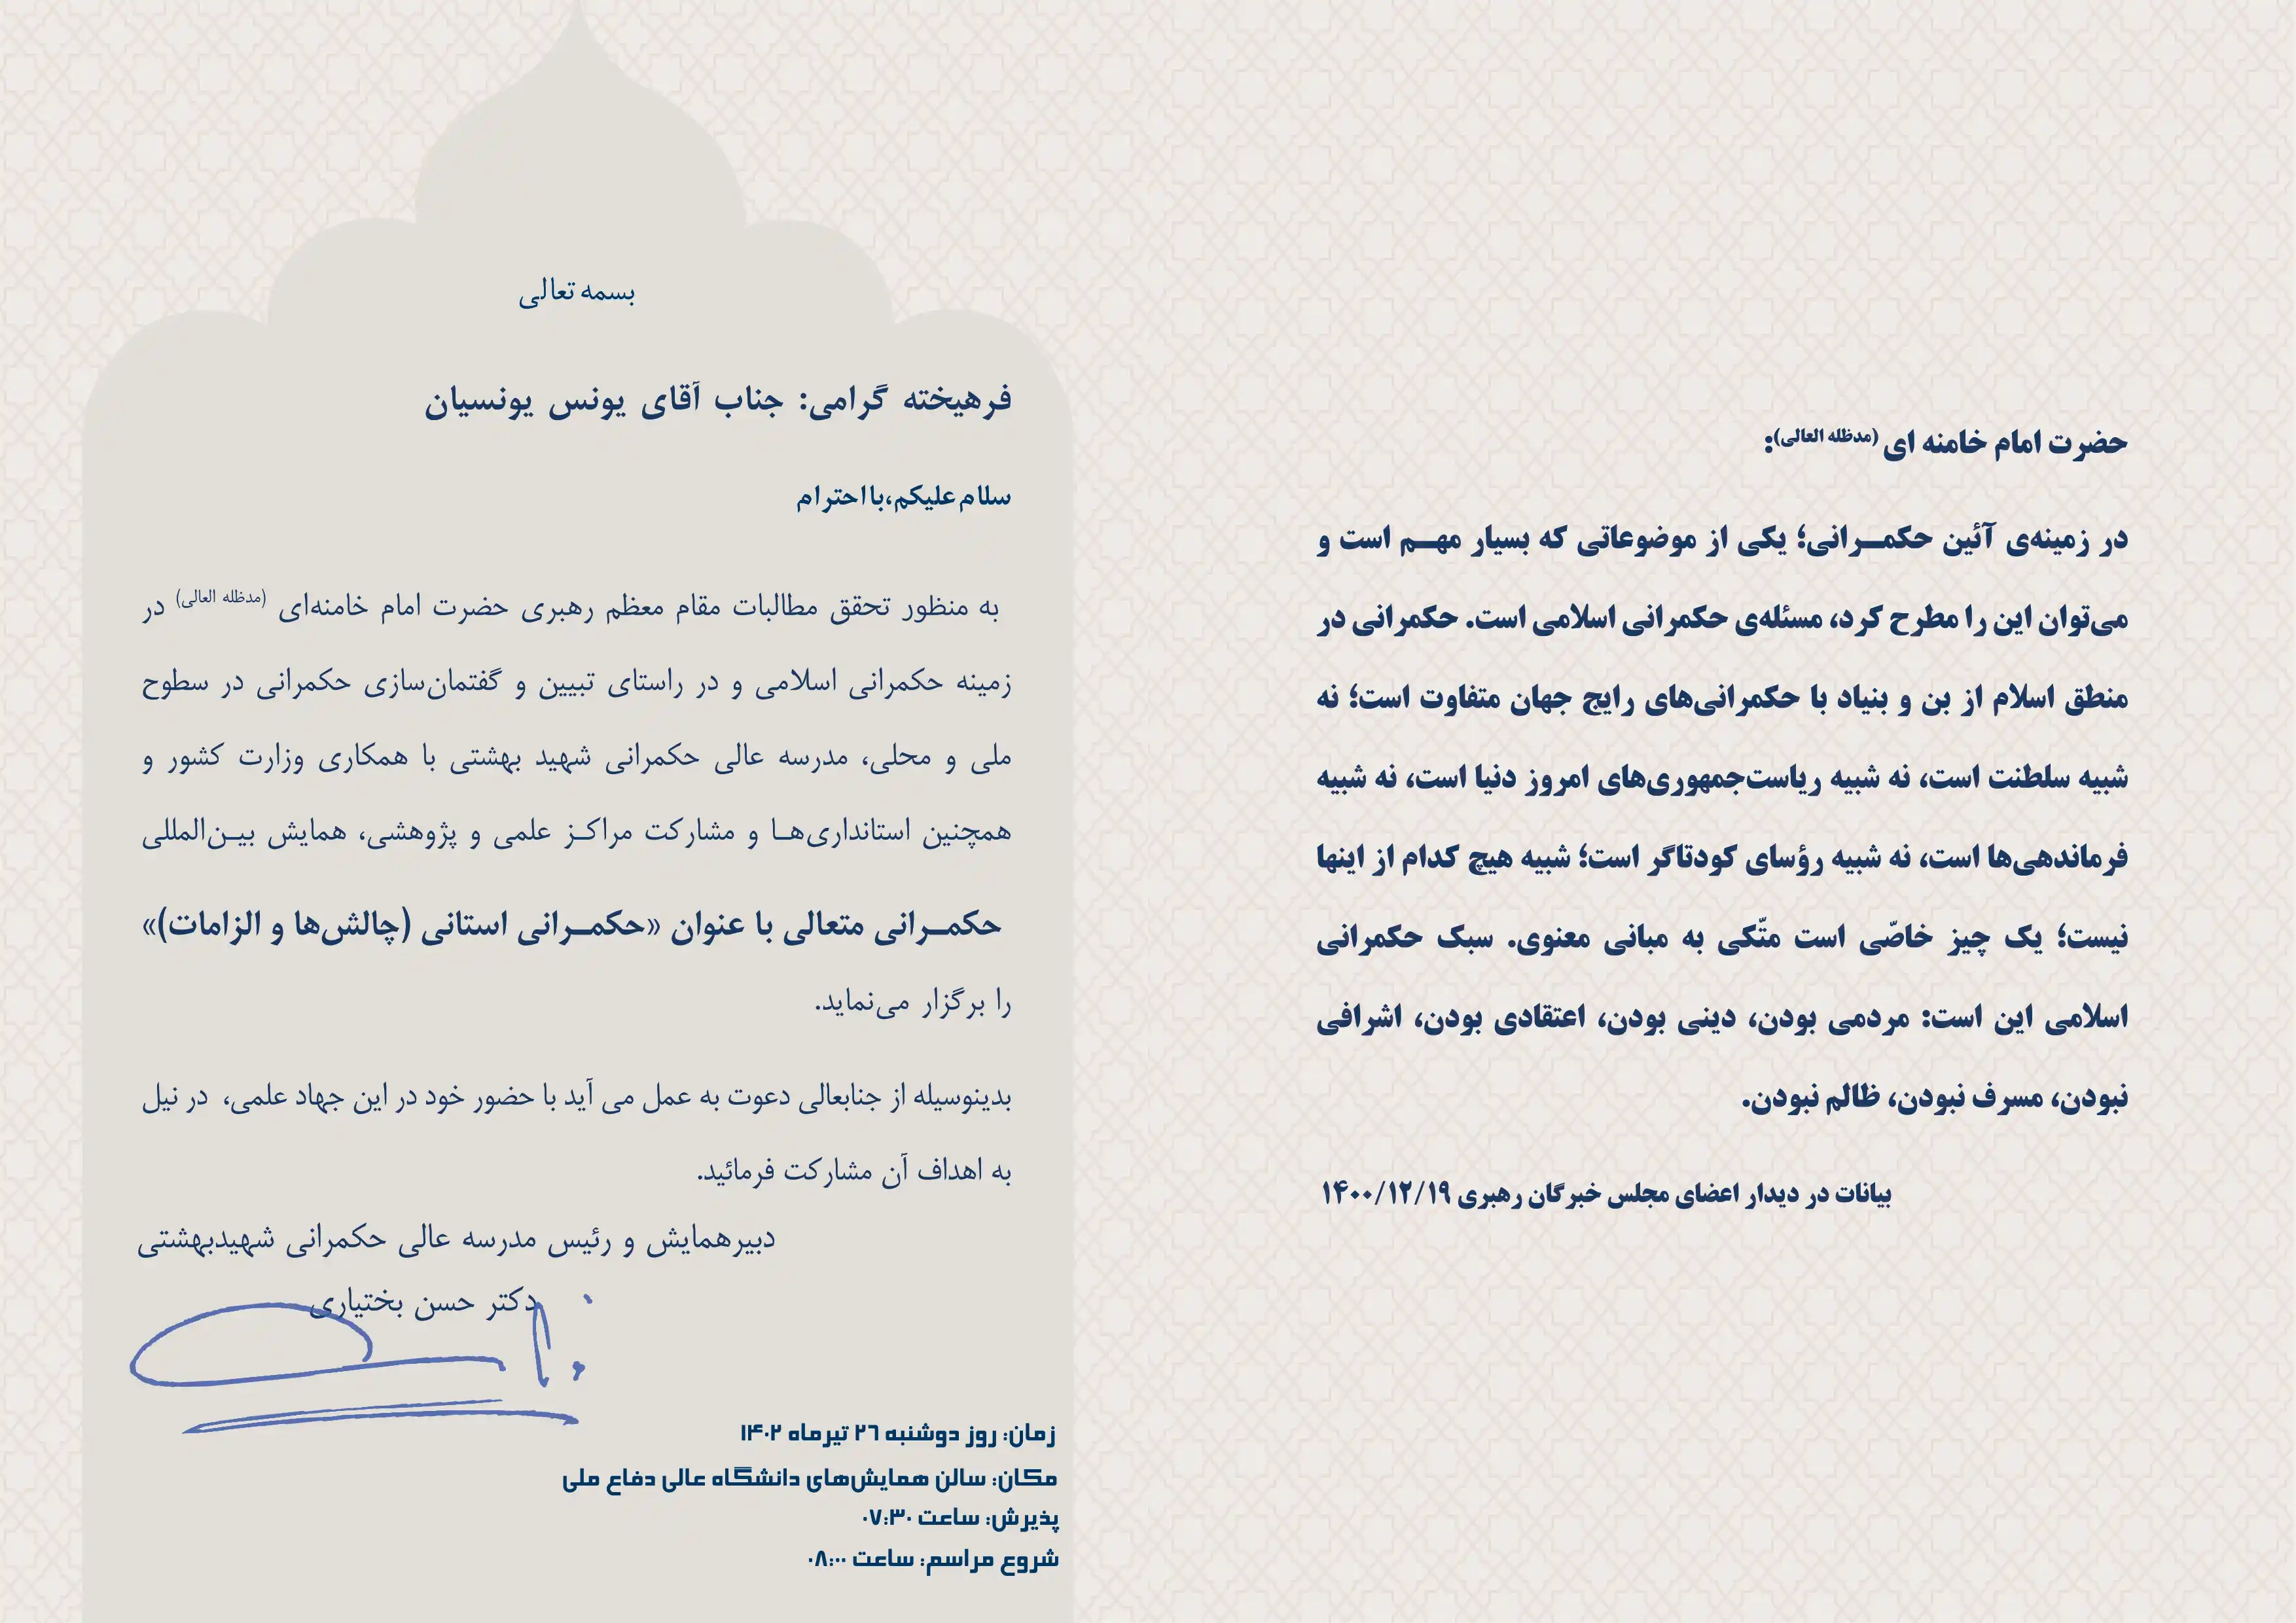 حضرت امام خامنه ای (مدظله العالی):
در زمینه‌ی آئین حکمــرانی؛ یکی از موضوعاتی که بسیار مهــم است و
می‌توان این را مطرح کرد، مسئله‌ی حکمرانی اسلامی است. حکمرانی در
منطق اسلام از بن و بنیاد با حکمرانی‌های رایج جهان متفاوت است؛ نه
شبیه سلطنت است، نه شبیه ریاست‌جمهوری‌های امروز دنیا است، نه شبیه
فرماندهی‌ها است، نه شبیه رؤسای کودتاگر است؛ شبیه هیچ کدام از اینها
نیست؛ یک چیز خاصّی است متّکی به مبانی معنوی. سبک حکمرانی
اسلامی این است: مردمی بودن، دینی بودن، اعتقادی بودن، اشرافی
نبودن، مسرف نبودن، ظالم نبودن.
بیانات در دیدار اعضای مجلس خبرگان رهبری ۱۴۰۰/۱۲/۱۹
بسمه تعالی
فرهیخته گرامی: جناب آقای یونس یونسیان
سلام علیکم،با احترام
به منظور تحقق مطالبات مقام معظم رهبری حضرت امام خامنه‌ای (مدظله العالی) در
زمینه حکمرانی اسلامی و در راستای تبیین و گفتمان‌سازی حکمرانی در سطوح
ملی و محلی، مدرسه عالی حکمرانی شهید بهشتی با همکاری وزارت کشور و
همچنین استانداری‌هــا و مشارکت مراکــز علمی و پژوهشی، همایش بیــن‌المللی
حکمــرانی متعالی با عنوان «حکمــرانی استانی (چالش‌ها و الزامات)»
را برگزار می‌نماید.
بدینوسیله از جنابعالی دعوت به عمل می آید با حضور خود در این جهاد علمی، در نیل
به اهداف آن مشارکت فرمائید.
دبیرهمایش و رئیس مدرسه عالی حکمرانی شهیدبهشتی
دکتر حسن بختیاری
زمان: روز دوشنبه ۲۶ تیرماه ۱۴۰۲
مکان: سالن همایش‌های دانشگاه عالی دفاع ملی
پذیرش: ساعت ۰۷:۳۰
شروع مراسم: ساعت ۰۸:۰۰